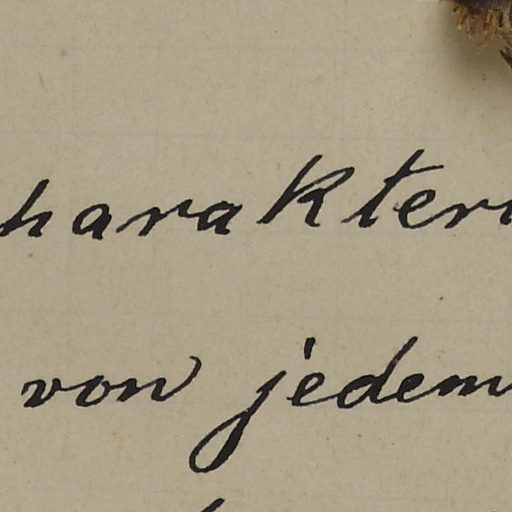 harakteri
von jedem